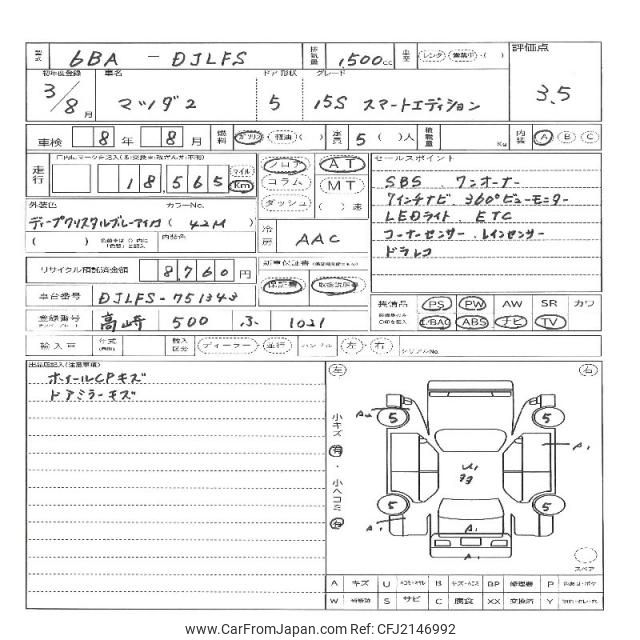 型式 6BA - DJLFS 排気量 1,500cc レンタ
評価点 3.5
初年度登録 3/8月 車名 マツダ2 ドア形状 5 グレード 15S スマートエディション
車検 8年 8月 燃料 ガソリン 軽油 ( ) 定員 5 ( )人 積載量 Kg 内装 A B C
走行 18,565 マイル Km
フロア コラム ダッシュ
AT MT ( )速
セールスポイント
SBS . ワンオーナー
7インチナビ 360°ビューモニター
LEDライト . ETC
コーナーセンサー . レインセンサー
ドラレコ
外装色 カラーNo.
ディープクリスタルブルーマイカ ( 42M )
冷房 AAC
リサイクル預託済金額 8,760円
新車保証書 保証書 取扱説明書
車台番号 DJLFS-751343
登録番号 高崎 500 ふ 1021
装備品 PS PW AW SR カワ
E/BAG ABS ナビ TV
輸入車 年式 輸入区分 ディーラー 並行 ハンドル 左 右 シリアルNo.
出品店記入(注意事項)
ホイールCPキズ
ドアミラーキズ
左 右
小キズ 有 ・ 小ヘコミ 有
A2 5 5 A1
U1
33
5 5
A1 A1
A1
スペア
A キズ U B キズ・ヘコミ BP 修理跡 P
W 補修跡 S サビ C 腐食 XX 交換済 Y
www.CarFromJapan.com | Ref. No: CFJ2146992